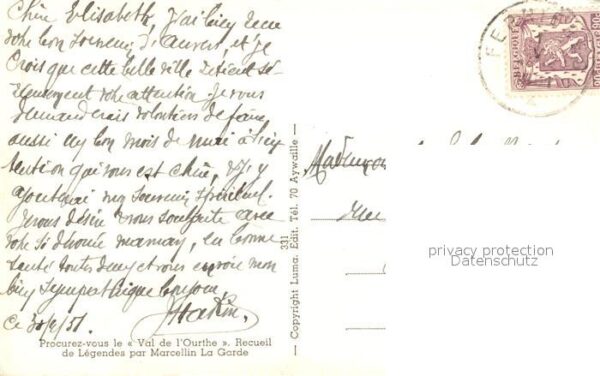 Chère Elisabeth, J'ai bien reçu
votre bon souvenir d'Anvers, et je
Crois que cette belle ville retient
votre attention. Je vous
demanderais volontiers de faire
aussi un bon mois de mai à l'in
tention qui vous est chère,
mon souvenir spirituel.
Je vous désire vous souhaite avec
votre si dévouée maman, en bonne
santé toutes deux et vous envoie mon
bien sympathique bonjour.
Ce 30/4/51.
Procurez-vous le « Val de l'Ourthe ». Recueil
de Légendes par Marcellin La Garde
331
— Copyright Luma. Edit. Tél. 70 Aywaille —
BELGIQUE
privacy protection
Datenschutz